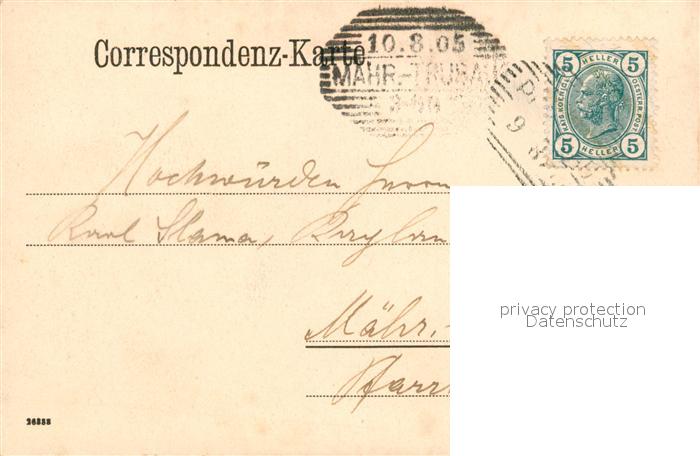 Correspondenz-Karte.
10.8.05
MÄHR.-TRÜBAU
5 HELLER 5
KAIS. KOENIGL. OESTERR. POST
5 HELLER 5
9
Hochwürden Herrn
Karl Slama,
Mähr.-
Pfarr
privacy protection
Datenschutz
26888